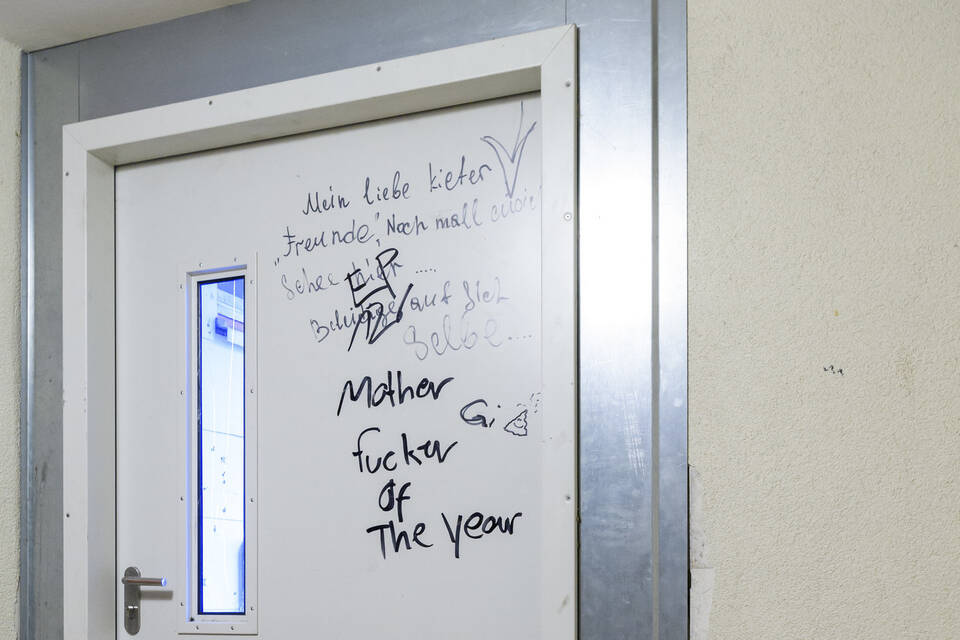 Mein liebe kieter
"Freunde", Noch mall
Sehee hier .....
auf Sich
Selbe....
Mother
Gi
fucker
Of
The year